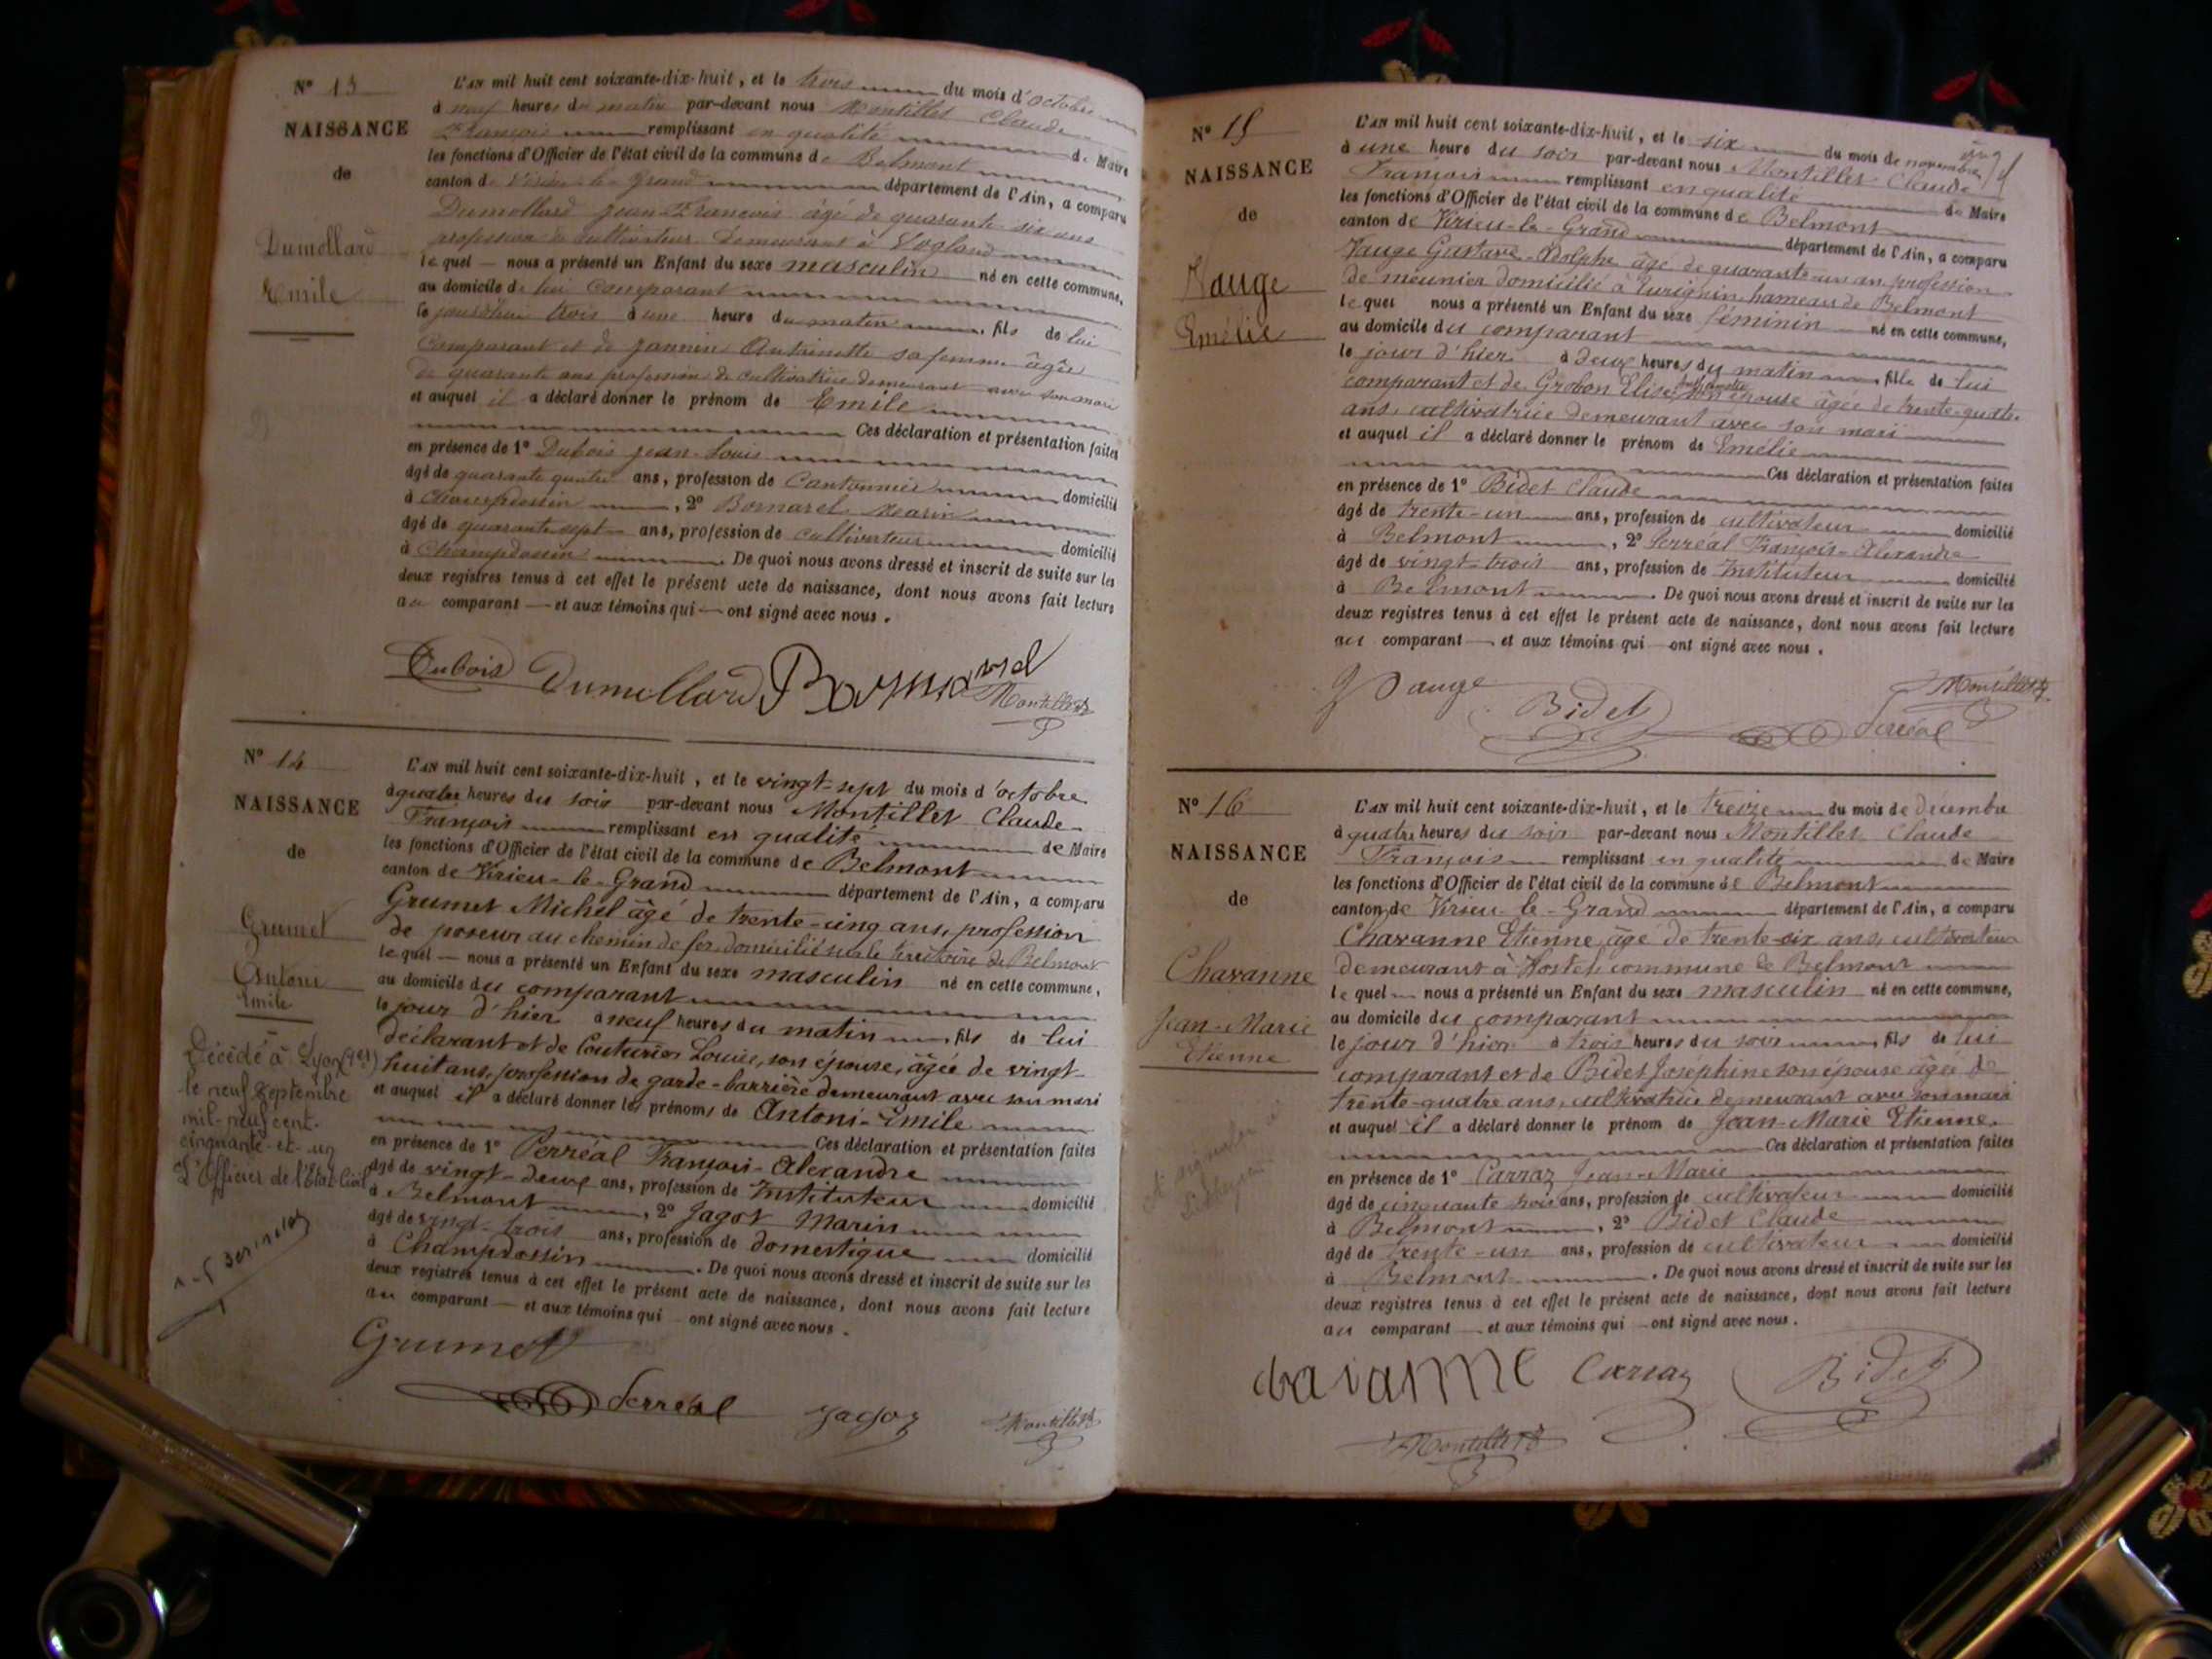 N° 13
NAISSANCE
de
Dumollard
Emile
L'AN mil huit cent soixante-dix-huit, et le trois du mois d'octobre
à neuf heures du matin par-devant nous Montillet Claude
François remplissant en qualité de Maire
les fonctions d'Officier de l'état civil de la commune de Belmont
canton de Virieu-le-Grand département de l'Ain, a comparu
Dumollard Jean-François âgé de quarante-six ans
profession de cultivateur demeurant à Vogland
lequel — nous a présenté un Enfant du sexe masculin né en cette commune,
au domicile de lui comparant
le jourd'hui trois à une heure du matin, fils de lui
Comparant et de Jannin Antoinette sa femme âgée
de quarante ans profession de cultivatrice demeurant avec son mari
et auquel il a déclaré donner le prénom de Emile
Ces déclaration et présentation faites
en présence de 1° Dubois Jean-Louis
âgé de quarante ans, profession de Cantonnier domicilié
à Champdossin, 2° Bornarel Marin
âgé de quarante-sept ans, profession de cultivateur domicilié
à Champdossin. De quoi nous avons dressé et inscrit de suite sur les
deux registres tenus à cet effet le présent acte de naissance, dont nous avons fait lecture
au comparant — et aux témoins qui — ont signé avec nous.
Dubois Dumollard Bornarel
Montillet
N° 14
NAISSANCE
de
Grumet
Antoni
Emile
Décédé à Lyon
le neuf septembre
mil-neuf cent-
cinquante-et-un
L'Officier de l'Etat Civil
L'AN mil huit cent soixante-dix-huit, et le vingt-sept du mois d'octobre
à quatre heures du soir par-devant nous Montillet Claude-
François remplissant en qualité de Maire
les fonctions d'Officier de l'état civil de la commune de Belmont
canton de Virieu-le-Grand département de l'Ain, a comparu
Grumet Michel âgé de trente-cinq ans, profession
de poseur au chemin de fer, domicilié sur le territoire de Belmont
lequel — nous a présenté un Enfant du sexe masculin né en cette commune,
au domicile du comparant
le jour d'hier à neuf heures du matin, fils de lui
déclarant et de Couturier Louise, son épouse, âgée de vingt-
huit ans, profession de garde-barrière demeurant avec son mari
et auquel il a déclaré donner les prénoms de Antoni-Emile
Ces déclaration et présentation faites
en présence de 1° Perréal François-Alexandre
âgé de vingt-deux ans, profession de Instituteur domicilié
à Belmont, 2° Jagot Marin
âgé de vingt-trois ans, profession de domestique domicilié
à Champdossin. De quoi nous avons dressé et inscrit de suite sur les
deux registres tenus à cet effet le présent acte de naissance, dont nous avons fait lecture
au comparant — et aux témoins qui — ont signé avec nous.
Grumet
Perréal Jagot Montillet
N° 15
NAISSANCE
de
Vauge
Emélie
L'AN mil huit cent soixante-dix-huit, et le six du mois de novembre
à une heure du soir par-devant nous Montillet Claude
François remplissant en qualité de Maire
les fonctions d'Officier de l'état civil de la commune de Belmont
canton de Virieu-le-Grand département de l'Ain, a comparu
Vauge Gustave-Adolphe âgé de quarante-un an, profession
de meunier domicilié à Eurignin hameau de Belmont
lequel nous a présenté un Enfant du sexe féminin né en cette commune,
au domicile du comparant
le jour d'hier à deux heures du matin, fille de lui
comparant et de Grobon Elise son épouse âgée de trente-quatre
ans, cultivatrice demeurant avec son mari
et auquel il a déclaré donner le prénom de Emélie
Ces déclaration et présentation faites
en présence de 1° Bidet Claude
âgé de trente-un ans, profession de cultivateur domicilié
à Belmont, 2° Perréal François-Alexandre
âgé de vingt-trois ans, profession de Instituteur domicilié
à Belmont. De quoi nous avons dressé et inscrit de suite sur les
deux registres tenus à cet effet le présent acte de naissance, dont nous avons fait lecture
au comparant — et aux témoins qui — ont signé avec nous.
Vauge Bidet Montillet
Perréal
N° 16
NAISSANCE
de
Chavanne
Jean-Marie
Etienne
L'AN mil huit cent soixante-dix-huit, et le treize du mois de decembre
à quatre heures du soir par-devant nous Montillet Claude
François remplissant en qualité de Maire
les fonctions d'Officier de l'état civil de la commune de Belmont
canton de Virieu-le-Grand département de l'Ain, a comparu
Chavanne Etienne, âgé de trente-six ans, cultivateur
demeurant à Hostel, commune de Belmont
lequel — nous a présenté un Enfant du sexe masculin né en cette commune,
au domicile du comparant
le jour d'hier à trois heures du soir, fils de lui
comparant et de Bidet Joséphine son épouse âgée de
trente-quatre ans, cultivatrice demeurant avec son mari
et auquel il a déclaré donner le prénom de Jean-Marie Etienne.
Ces déclaration et présentation faites
en présence de 1° Carraz Jean-Marie
âgé de cinquante trois ans, profession de cultivateur domicilié
à Belmont, 2° Bidet Claude
âgé de trente-un ans, profession de cultivateur domicilié
à Belmont. De quoi nous avons dressé et inscrit de suite sur les
deux registres tenus à cet effet le présent acte de naissance, dont nous avons fait lecture
au comparant — et aux témoins qui — ont signé avec nous.
Carraz Bidet
Montillet